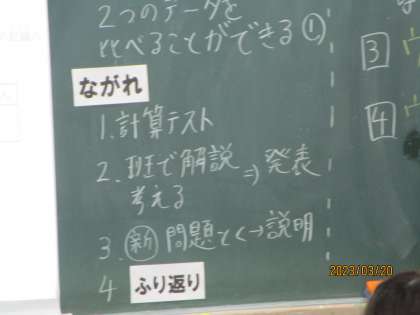 2つのデータを
比べることができる①
ながれ
1.計算テスト
2.班で解説⇒発表
考える
3.新 問題とく→説明
4 ふり返り
3
4
2023/03/20